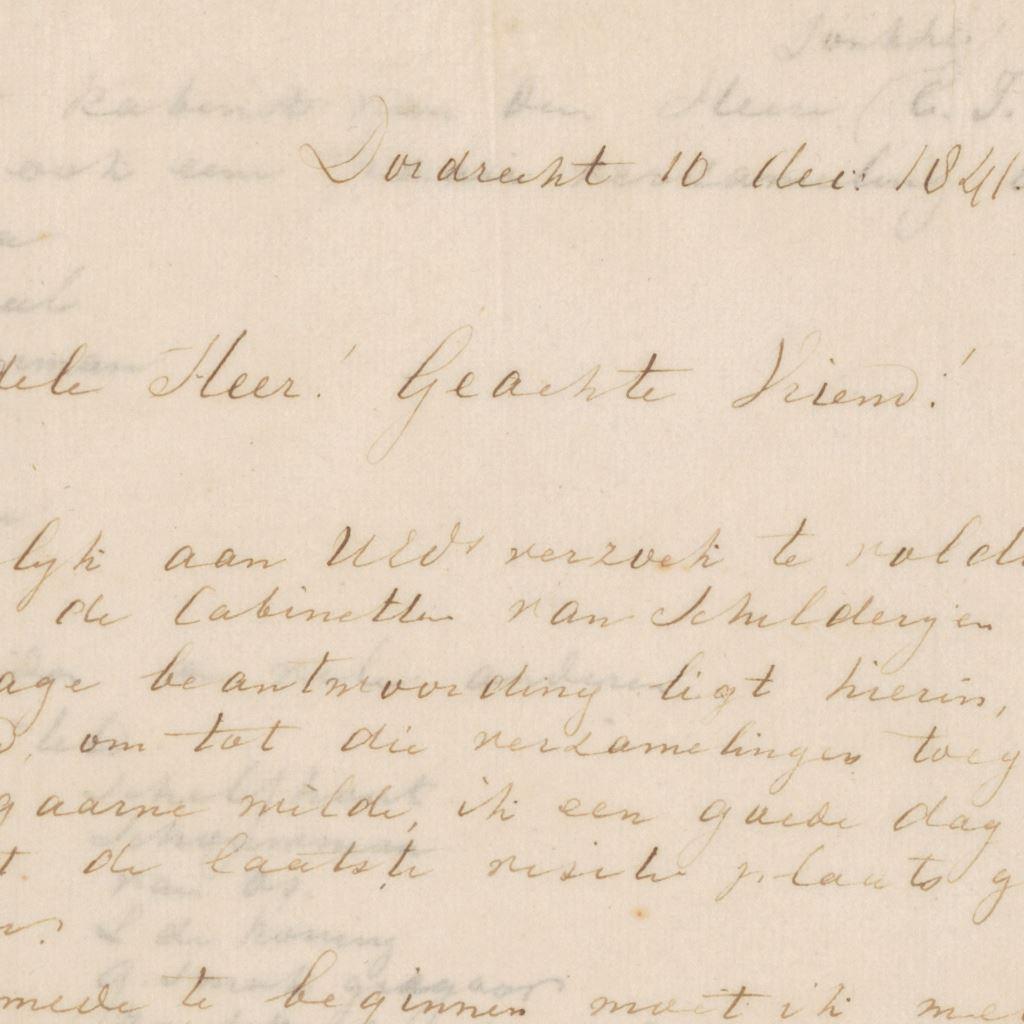 Dordrecht 10 dec: 1841.
dele Heer! Geachte Vriend!
lijk aan UEds verzoek te vold
de Cabinetten van Schilderijen
age beantwoording ligt hierin,
om tot die verzamelingen toeg
gaarne wilde, ik een goede dag
t. de laatste visite plaats g
mede te beginnen moet ik me